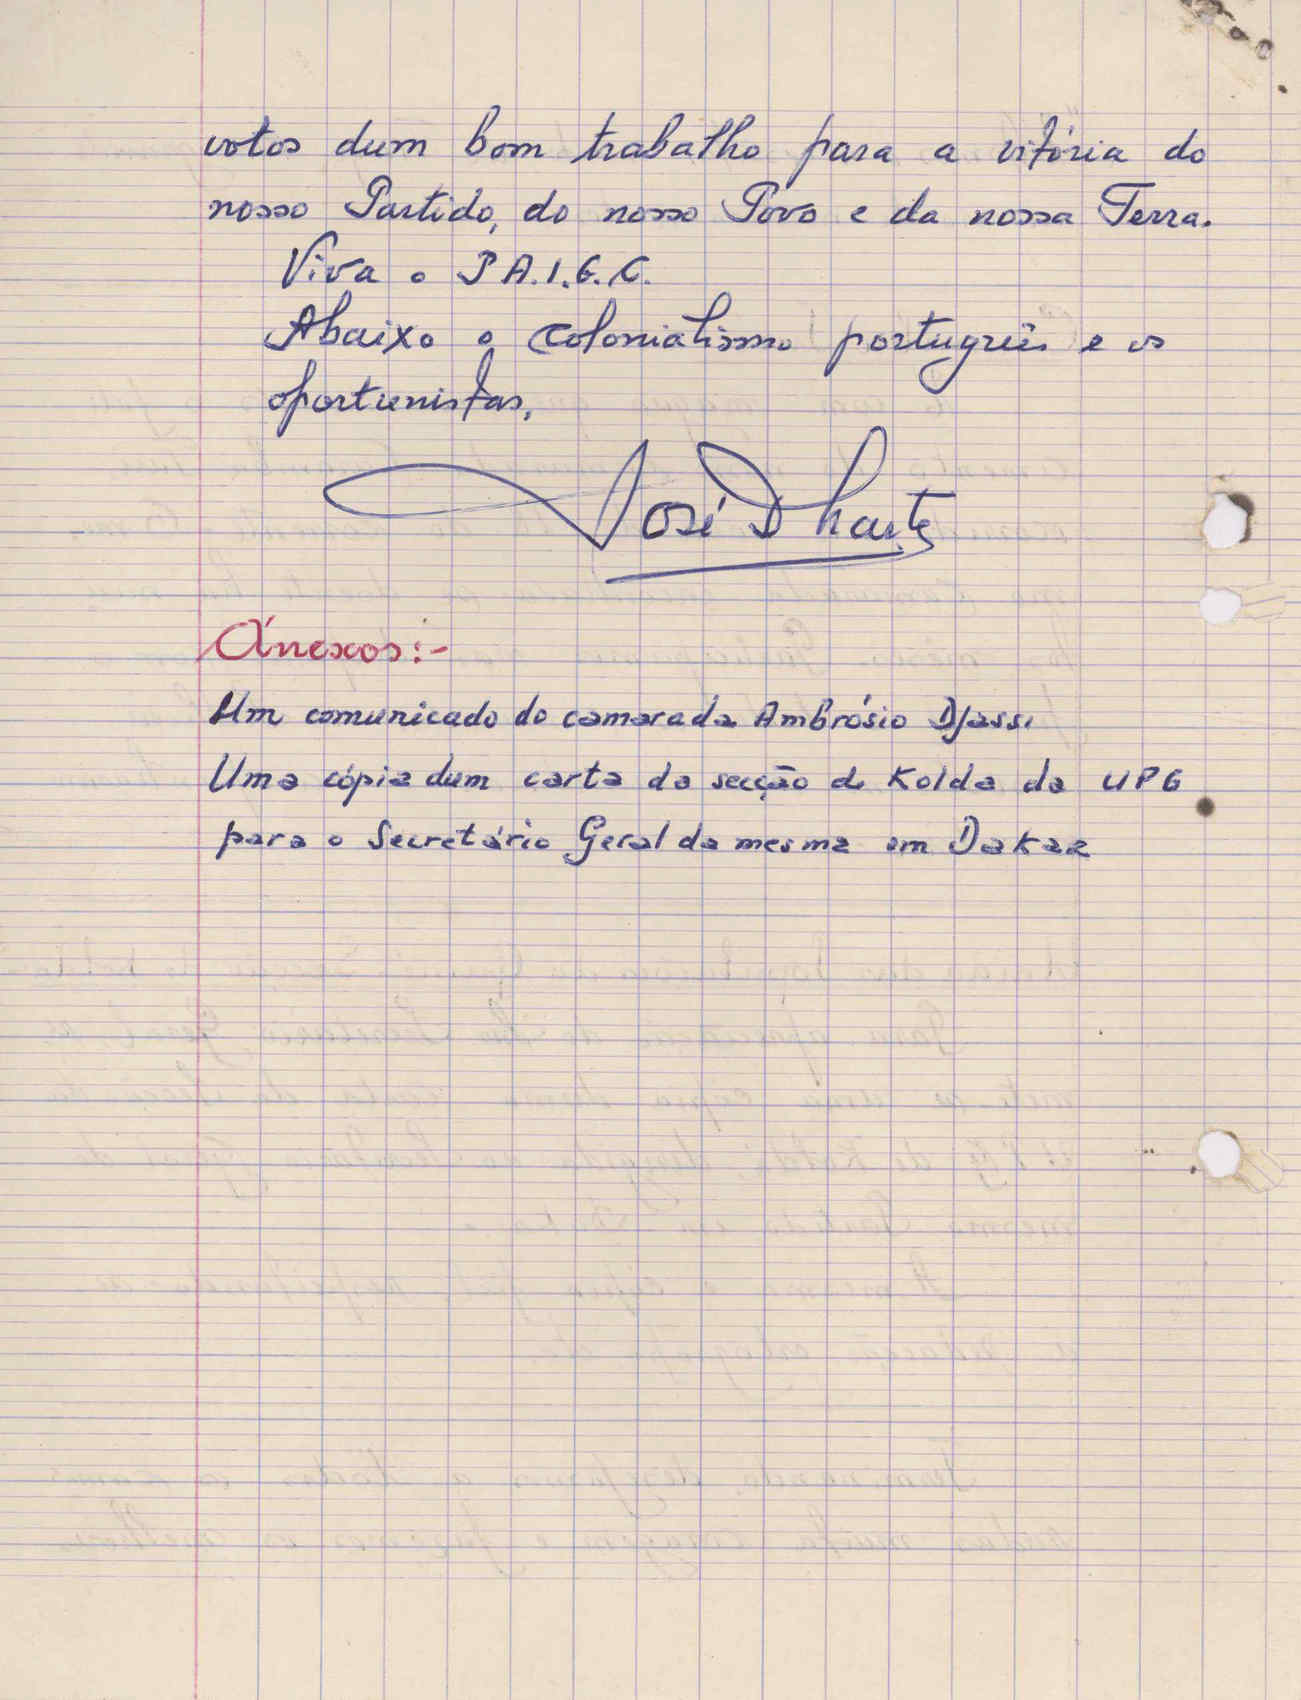 votos dum bom trabalho para a vitória do
nosso Partido, do nosso Povo e da nossa Terra.
Viva o P.A.I.G.C.
Abaixo o colonialismo português e os
oportunistas,
José Dharte
Ánexos:-
Um comunicado do camarada Ambrósio Djassi
Uma cópia dum carta da secção de Kolda da UPG
para o Secretário Geral da mesma em Dakar